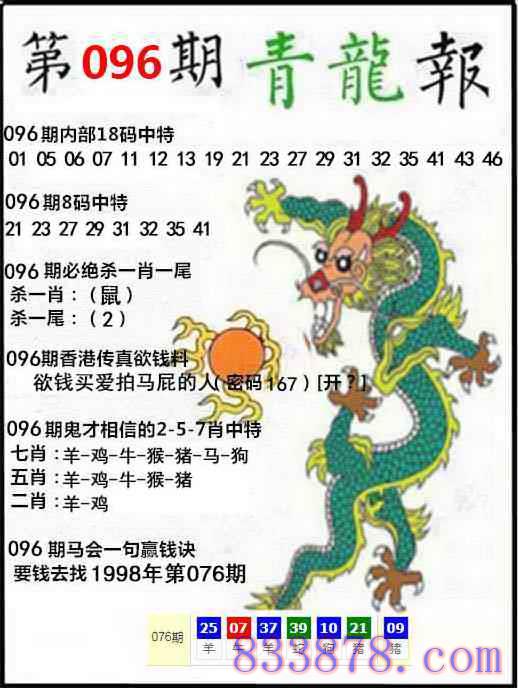 第096期青龍報
096期内部18码中特
01 05 06 07 11 12 13 19 21 23 27 29 31 32 35 41 43 46
096期8码中特
21 23 27 29 31 32 35 41
096期必绝杀一肖一尾
杀一肖：（鼠）
杀一尾：（2）
096期香港传真欲钱料
欲钱买爱拍马屁的人（密码167）[开？]
096期鬼才相信的2-5-7肖中特
七肖：羊-鸡-牛-猴-猪-马-狗
五肖：羊-鸡-牛-猴-猪
二肖：羊-鸡
096期马会一句赢钱诀
要钱去找1998年第076期
076期 25 07 37 39 10 21 09
羊 牛 羊 蛇 狗 猪 猪
833878.com